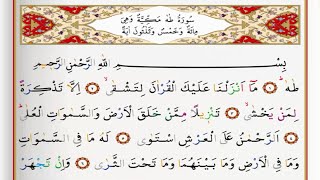 سُورَةُ طٰهٰ مَكِّيَّةٌ وَهِيَ
مِائَةٌ وَخَمْسٌ وَثَلٰثُونَ اٰيَةً
بِسْمِ اللّٰهِ الرَّحْمٰنِ الرَّحٖيمِ
طٰهٰ ۚ ١ مَٓا اَنْزَلْنَا عَلَيْكَ الْقُرْاٰنَ لِتَشْقٰىۙ ٢ اِلَّا تَذْكِرَةً
لِمَنْ يَخْشٰىۙ ٣ تَنْزٖيلاً مِمَّنْ خَلَقَ الْاَرْضَ وَالسَّمٰوَاتِ الْعُلٰىۜ
٤ اَلرَّحْمٰنُ عَلَى الْعَرْشِ اسْتَوٰى ٥ لَهُ مَا فِي السَّمٰوَاتِ وَمَا
فِي الْاَرْضِ وَمَا بَيْنَهُمَا وَمَا تَحْتَ الثَّرٰى ٦ وَاِنْ تَجْهَرْ